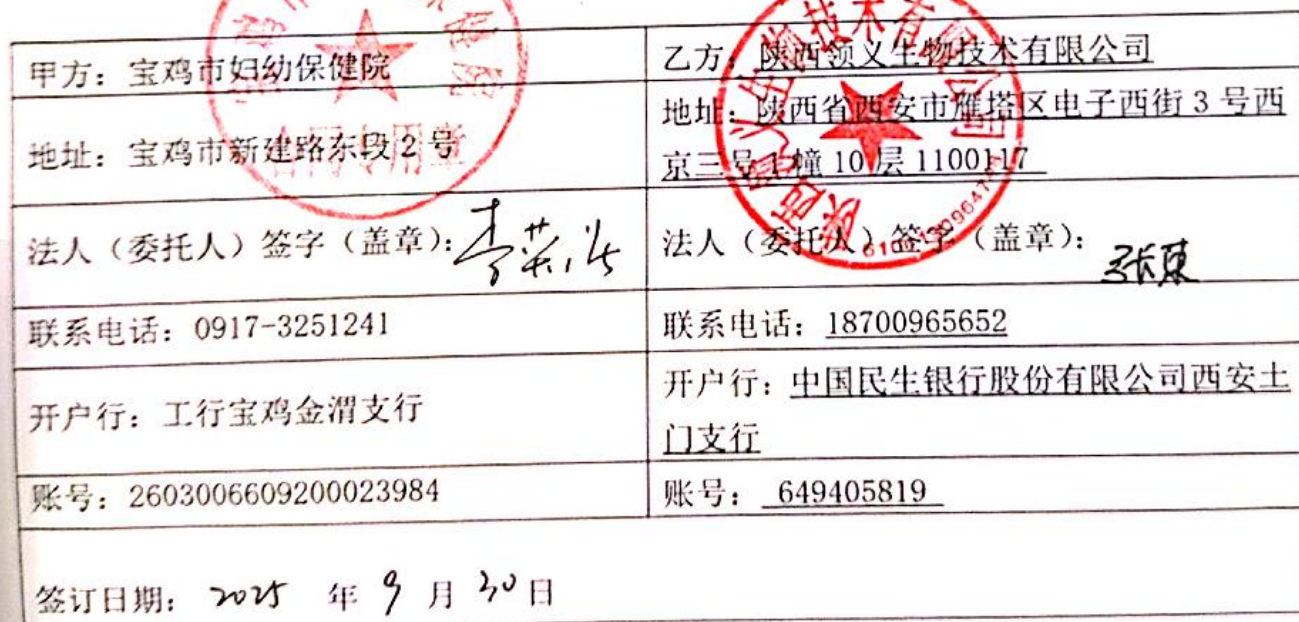 甲方：宝鸡市妇幼保健院
乙方：陕西领义生物技术有限公司
地址：宝鸡市新建路东段2号
地址：陕西省西安市雁塔区电子西街3号西
京三号1幢10层1100117
法人（委托人）签字（盖章）：
法人（委托人）签字（盖章）：
联系电话：0917-3251241
联系电话：18700965652
开户行：工行宝鸡金渭支行
开户行：中国民生银行股份有限公司西安土
门支行
账号：2603006609200023984
账号：649405819
签订日期：2025 年 9 月 30 日
合同专用章
陕西领义生物技术有限公司